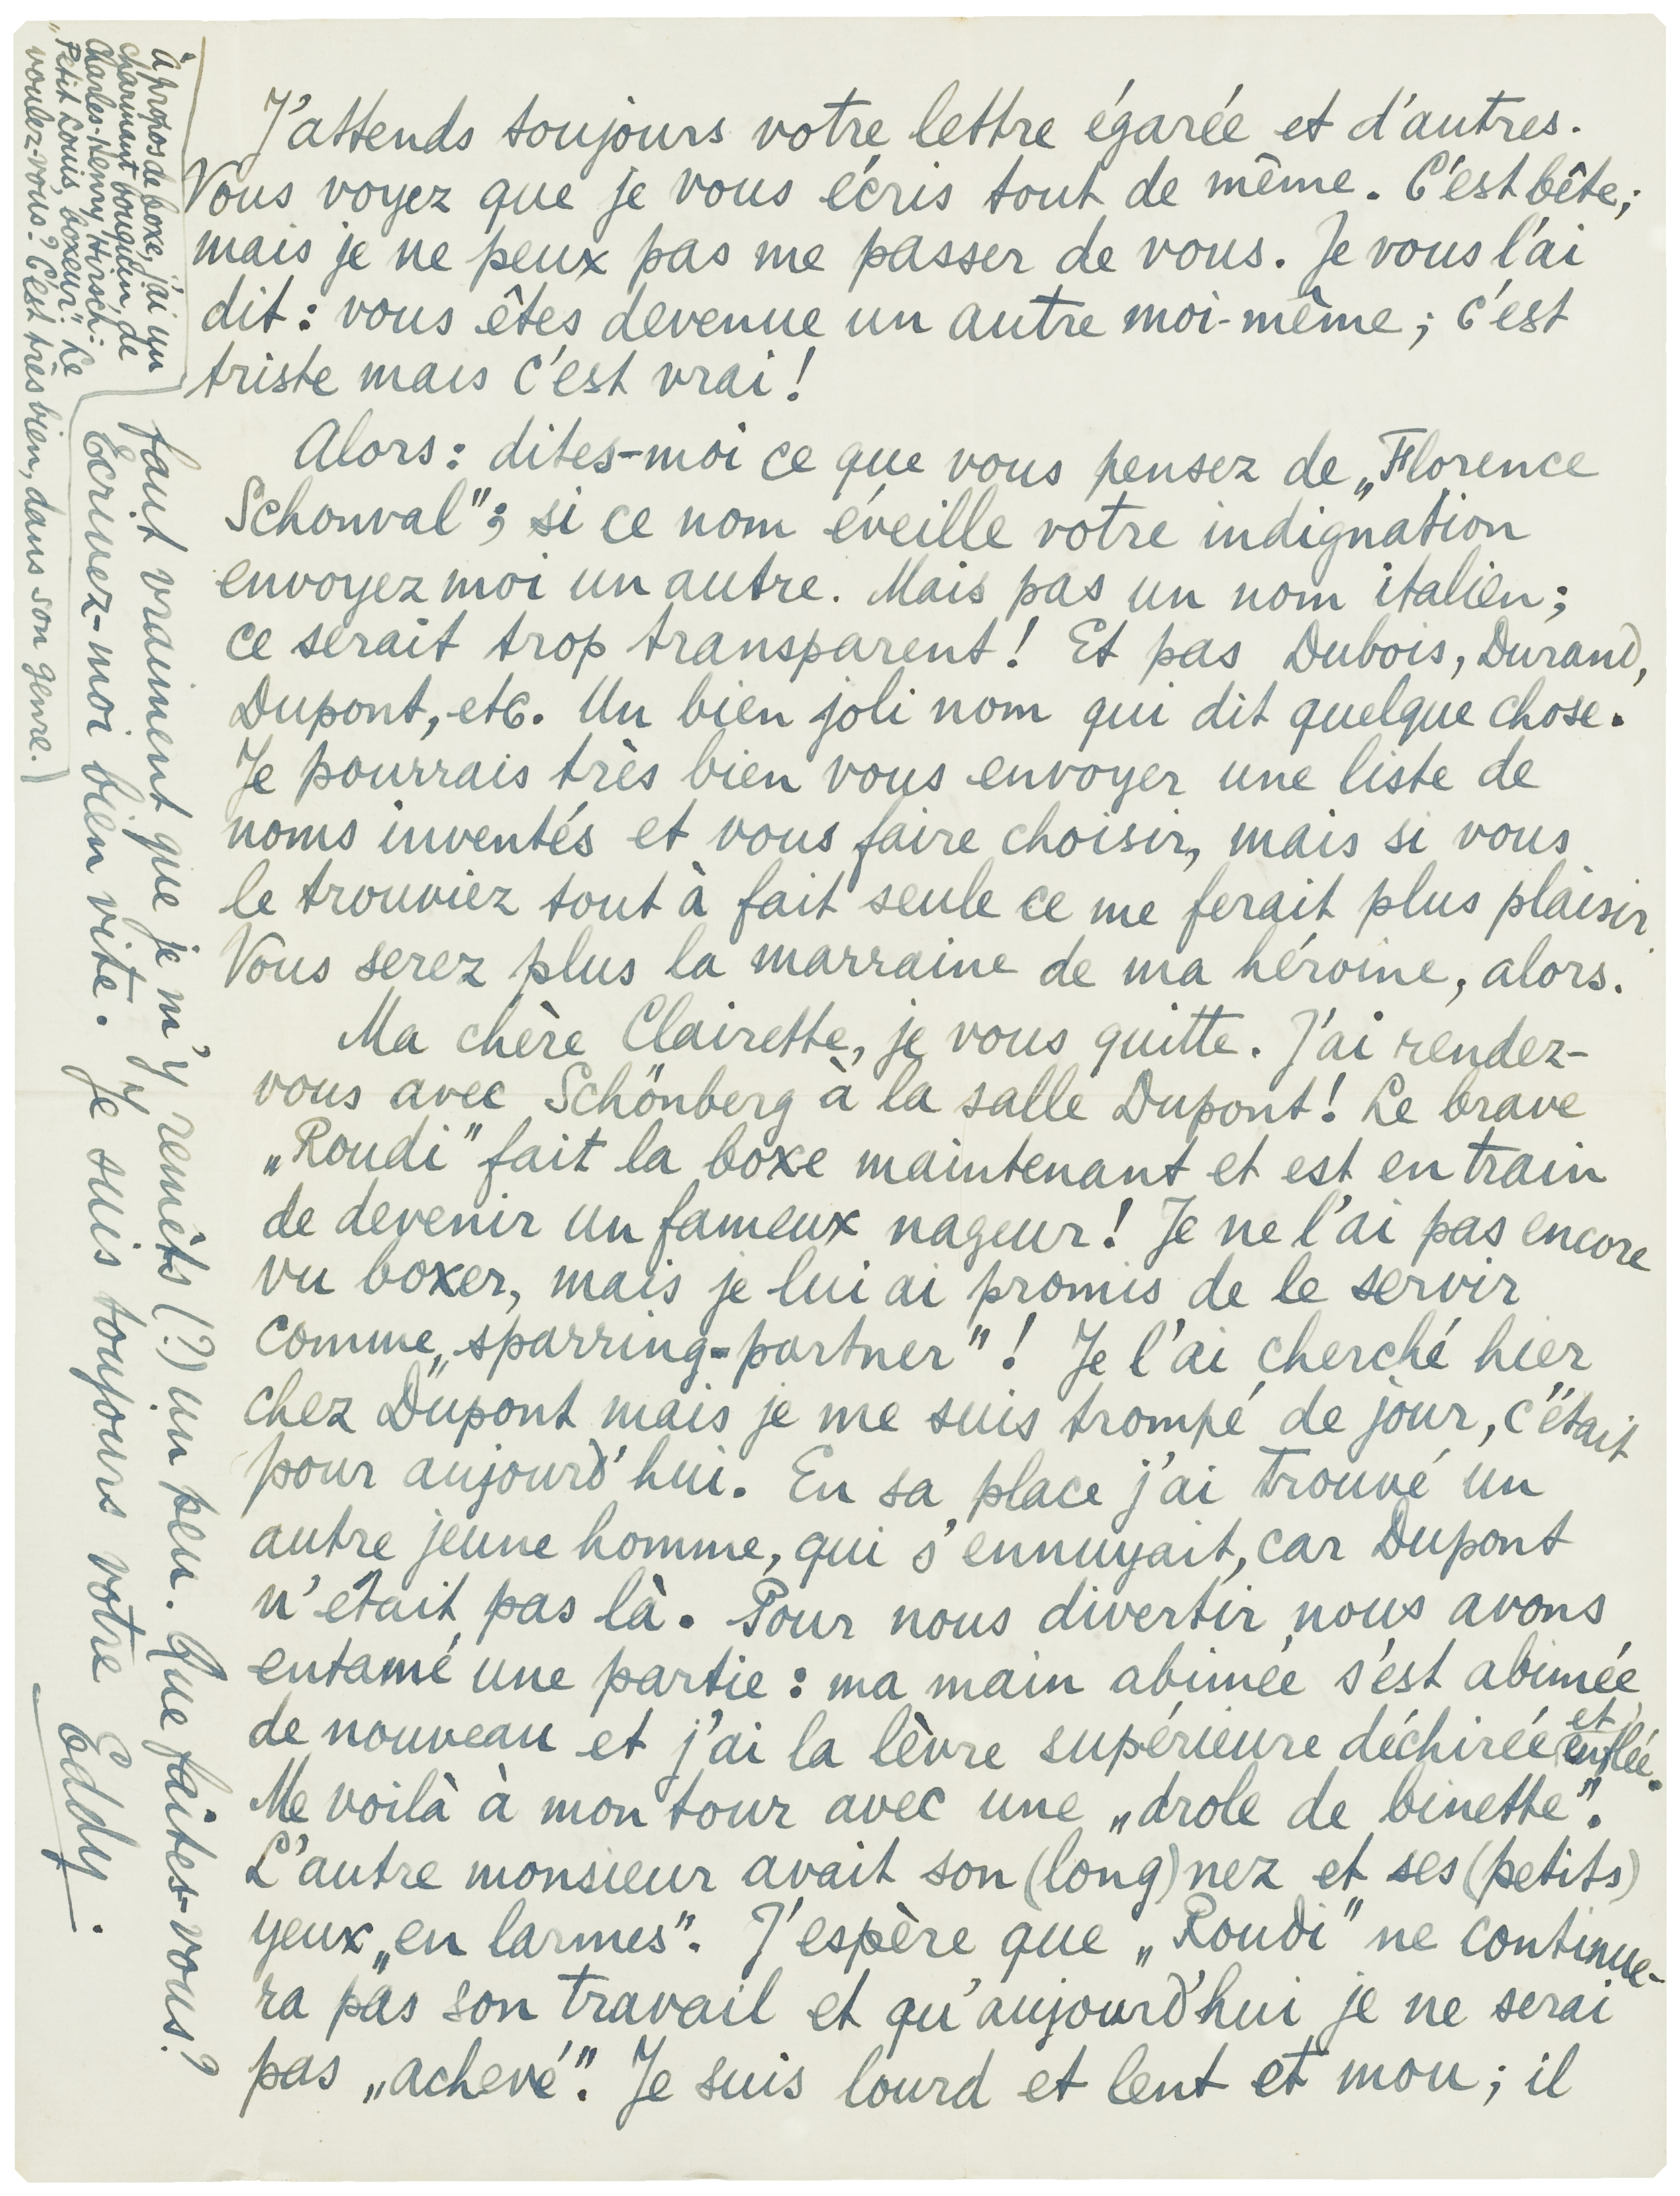 J'attends toujours votre lettre égarée et d'autres.
Vous voyez que je vous écris tout de même. C'est bête;
mais je ne peux pas me passer de vous. Je vous l'ai
dit: vous êtes devenue un autre moi-même; c'est
triste mais c'est vrai!
Alors: dites-moi ce que vous pensez de „Florence
Schonval"; si ce nom éveille votre indignation
envoyez moi un autre. Mais pas un nom italien;
ce serait trop transparent! Et pas Dubois, Durand,
Dupont, etc. Un bien joli nom qui dit quelque chose.
Je pourrais très bien vous envoyer une liste de
noms inventés et vous faire choisir, mais si vous
le trouviez tout à fait seule ce me ferait plus plaisir.
Vous serez plus la marraine de ma héroine, alors.
Ma chère Clairette, je vous quitte. J'ai rendez-
vous avec Schönberg à la salle Dupont! Le brave
„Roudi" fait la boxe maintenant et est en train
de devenir un fameux nageur! Je ne l'ai pas encore
vu boxer, mais je lui ai promis de le servir
comme „sparring-partner"! Je l'ai cherché hier
chez Dupont mais je me suis trompé de jour, c'était
pour aujourd'hui. En sa place j'ai trouvé un
autre jeune homme, qui s'ennuyait, car Dupont
n'était pas là. Pour nous divertir nous avons
entamé une partie: ma main abimée s'est abimée
de nouveau et j'ai la lèvre supérieure déchirée et enflée.
Me voilà à mon tour avec une „drole de binette".
L'autre monsieur avait son (long) nez et ses (petits)
yeux „en larmes". J'espère que „Roudi" ne continue-
ra pas son travail et qu'aujourd'hui je ne serai
pas „achevé". Je suis lourd et lent et mou; il
faut vraiment que je m'y remèts (?) un peu. Que faites-vous?
Ecrivez-moi bien vite. Je suis toujours votre
Eddy.
à propos de boxe, j'ai un
charmant bouquin, de
Charles-Henry Hirsch:
„Petit Louis, boxeur". Le
voulez-vous? C'est très bien, dans son genre.)